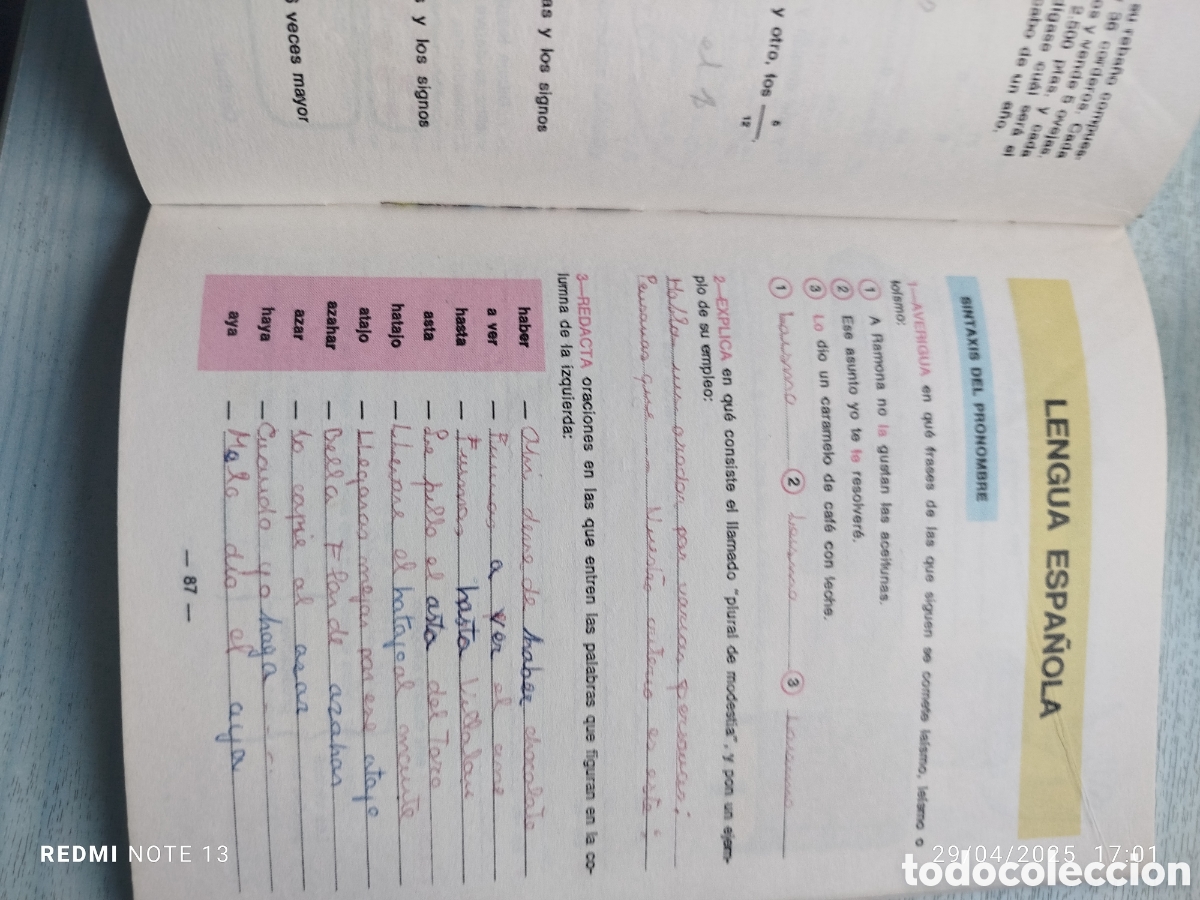 su rebaño compues-
36 corderos. Cada
os y vende 5 ovejas.
2.500 ptas. y cada
dígase cuál será el
cabo de un año,
y otro, los 6/12,
el 1
as y los signos
s y los signos
s veces mayor
LENGUA ESPAÑOLA
SINTAXIS DEL PRONOMBRE
1—AVERIGUA en qué frases de las que siguen se comete laísmo, leísmo o
loísmo:
1 A Ramona no la gustan las aceitunas.
2 Ese asunto yo te le resolveré.
3 Lo dio un caramelo de café con leche.
1 laismo 2 leismo 3 loismo
2—EXPLICA en qué consiste el llamado "plural de modestia", y pon un ejem-
plo de su empleo:
Habla un orador por varias personas;
Pensamos que Nuestro criterio es este;
3—REDACTA oraciones en las que entren las palabras que figuran en la co-
lumna de la izquierda:
haber — Ahi deve de haber chocolate
a ver — Fuimos a ver el cine
hasta — Fuimos hasta
asta — Le pillo el asta del Toro
hatajo — Llevare el hatajo al monte
atajo — Llegaras mejor por ese atajo
azahar — Bella Flor de azahar
azar — Lo cogie al azar
haya — Cuando yo haya
aya — Mela dio el aya
— 87 —
REDMI NOTE 13
29/04/2025 17:01
todocoleccion